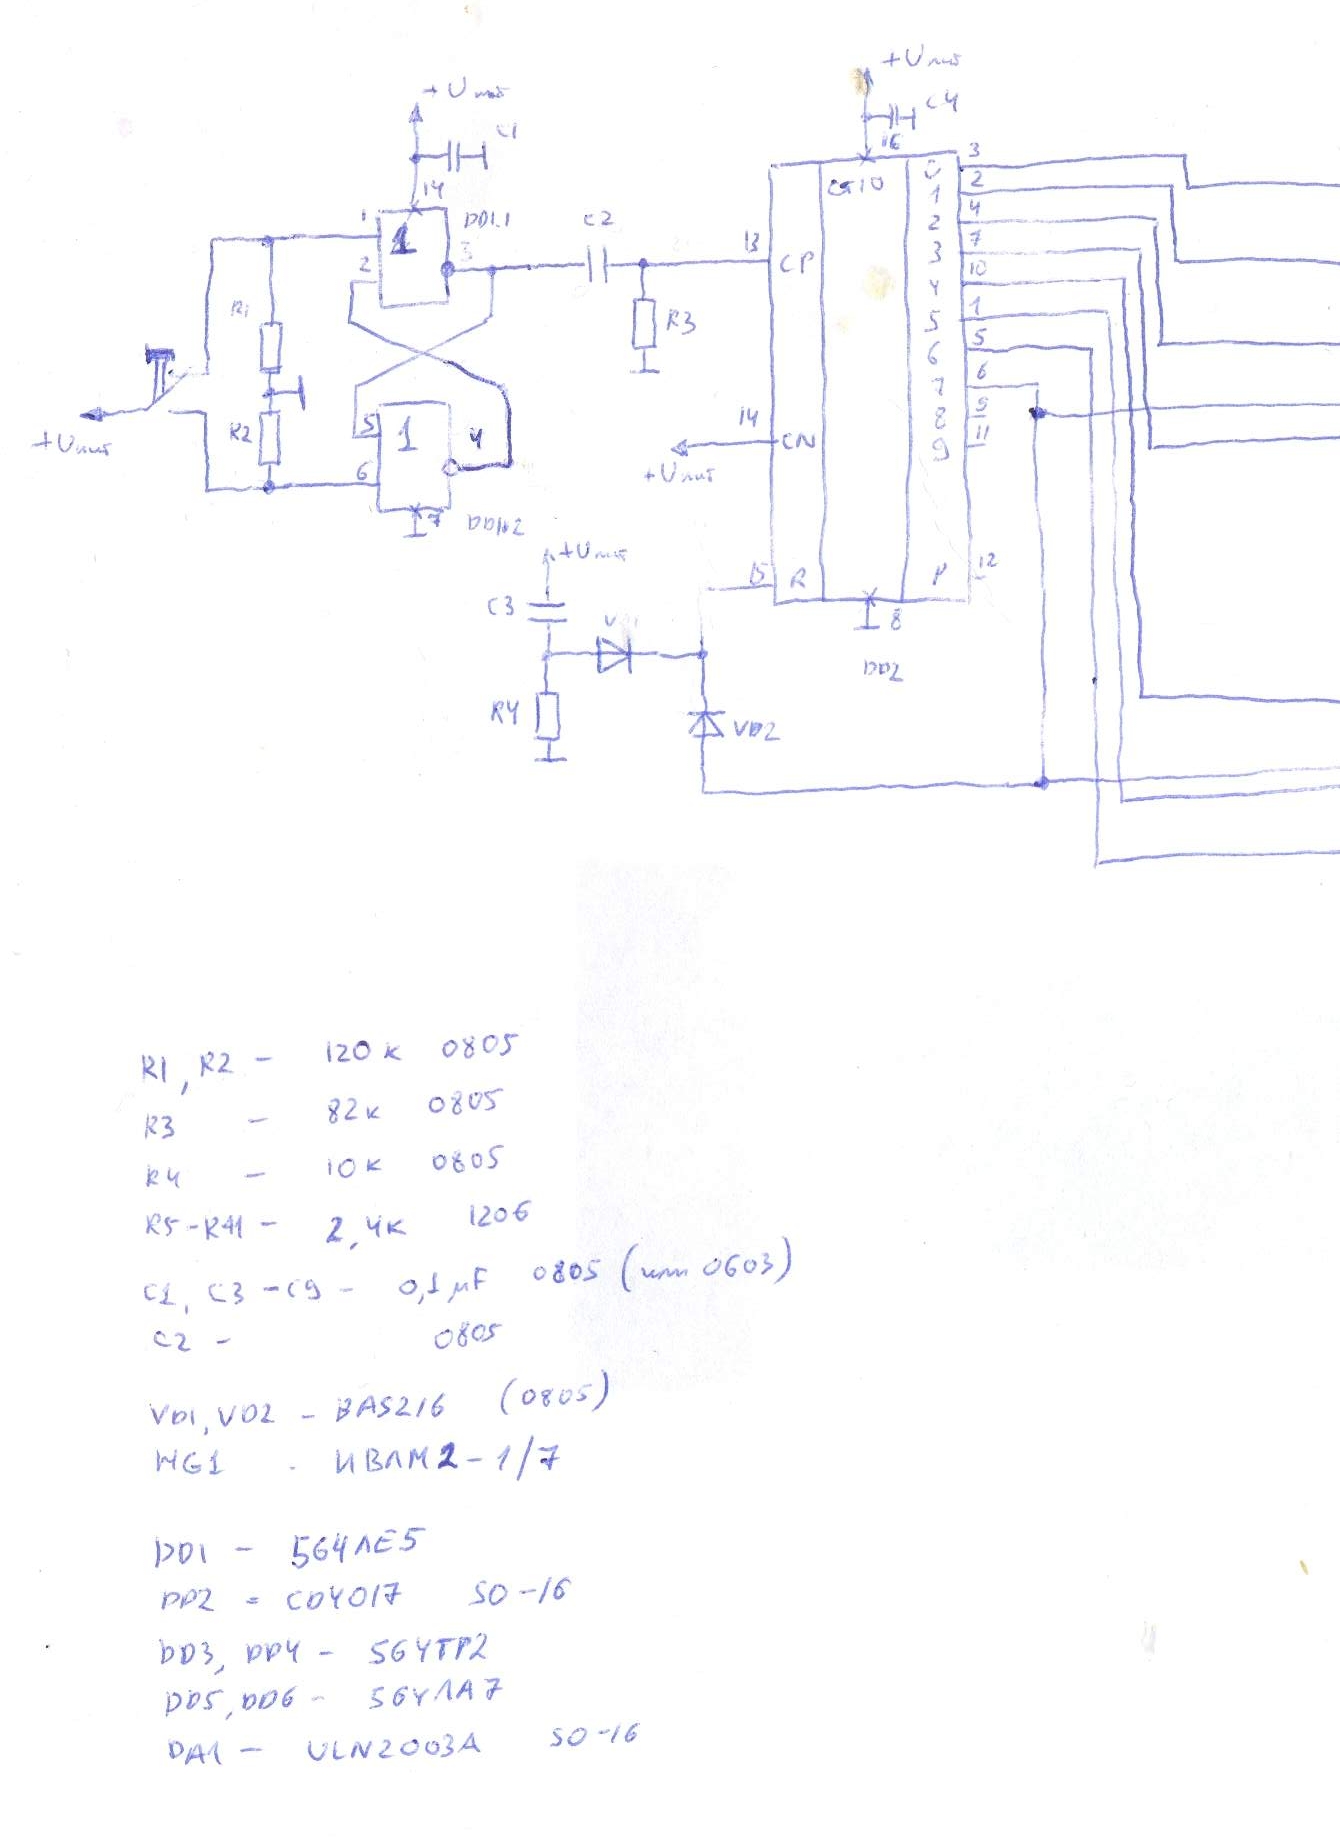 +Uпит
C1
14
1
DD1.1
1
2
3
R1
R2
+Uпит
5
1
4
6
7
DD1.2
C2
R3
+Uпит
C4
16
CT10
13
CP
14
CN
+Uпит
15
R
0
3
1
2
2
4
3
7
4
10
5
1
6
5
7
6
8
9
9
11
P
12
8
DD2
+Uпит
C3
VD1
R4
VD2
R1, R2 - 120к 0805
R3 - 82к 0805
R4 - 10к 0805
R5-R41 - 2,4к 1206
C1, C3-C9 - 0,1µF 0805 (или 0603)
C2 - 0805
VD1, VD2 - BAS216 (0805)
HG1 - ИВЛМ2-1/7
DD1 - 564ЛЕ5
DD2 = CD4017 SO-16
DD3, DD4 - 564ТР2
DD5, DD6 - 564ЛА7
DA1 - ULN2003A SO-16